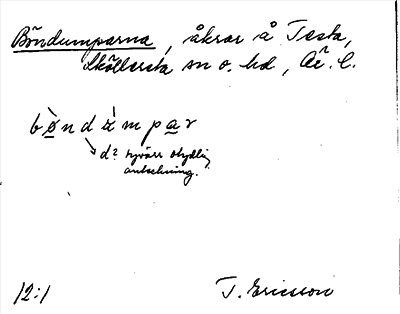 Böndumparna, åkrar å Testa,
Sköllersta sn o. hd, Ö.l.
bòndámpar
d? tyvärr otydlig
anteckning.
12:1
T. Ericsson